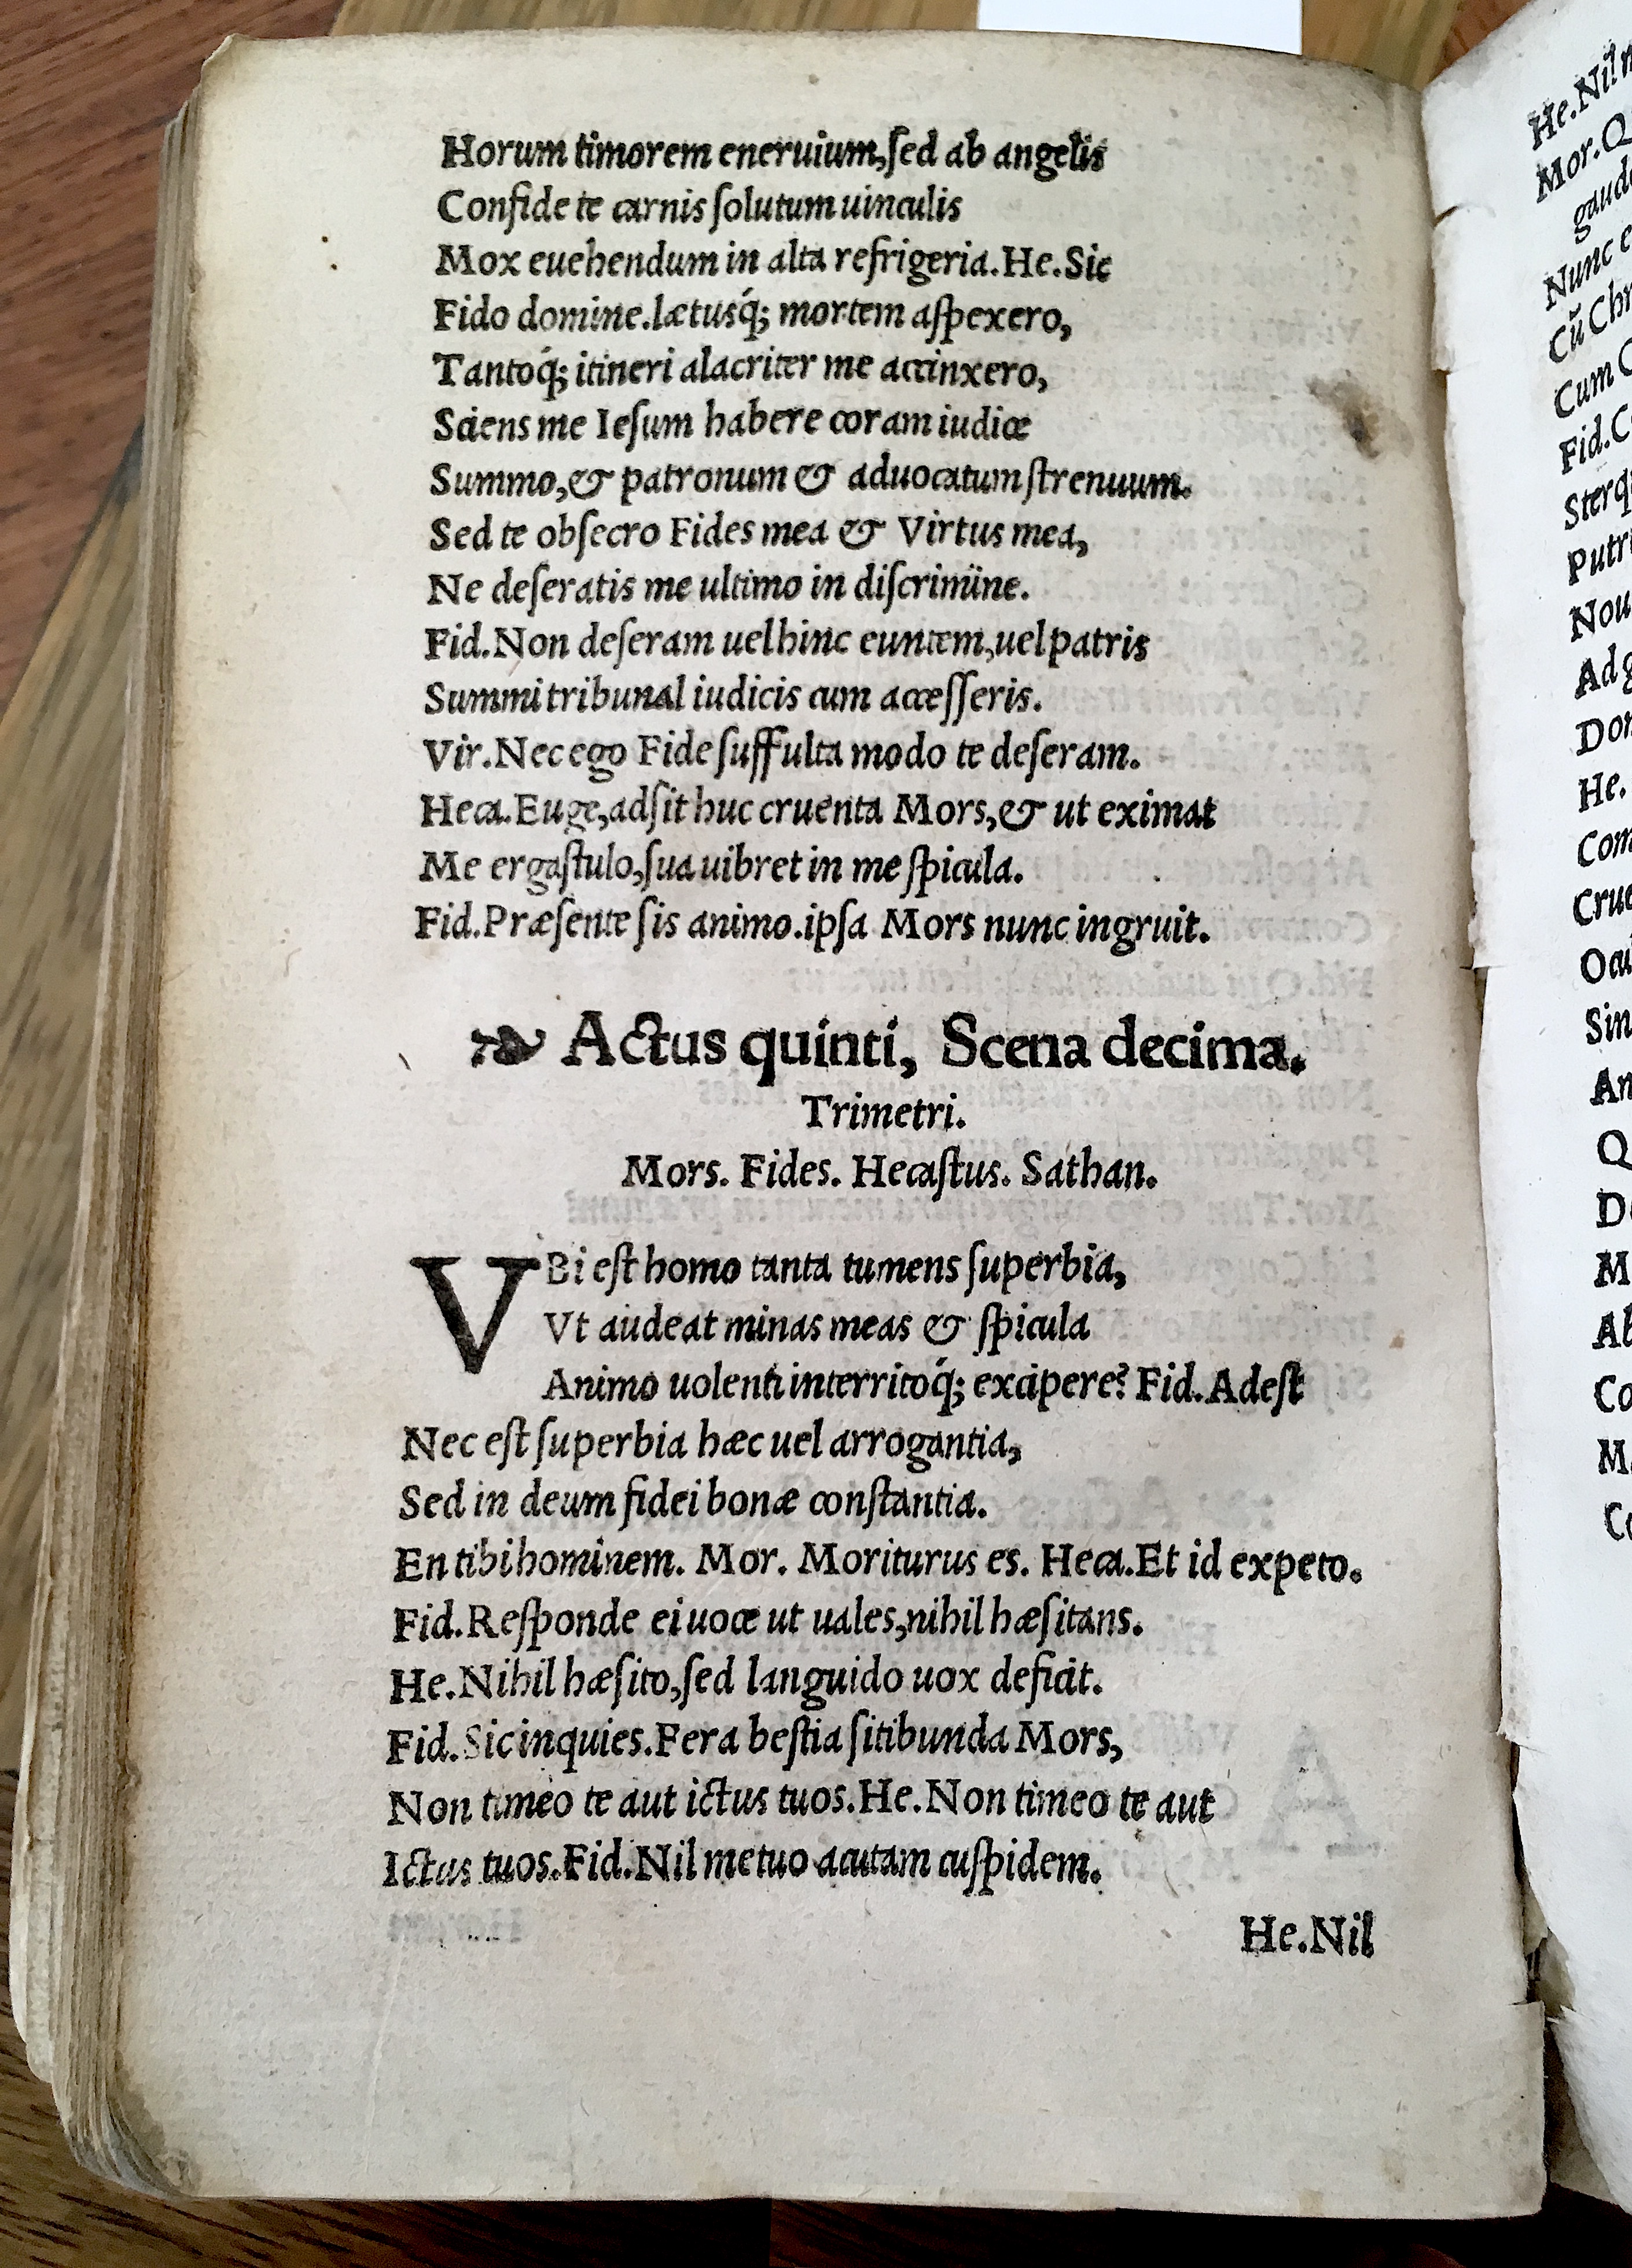 Horum timorem eneruium,ſed ab angelis
Confide te carnis ſolutum uinculis
Mox euehendum in alta refrigeria.He.Sic
Fido domine.lætusq́; mortem aſpexero,
Tantoq́; itineri alacriter me accinxero,
Sciens me Ieſum habere coram iudice
Summo,& patronum & aduocatum ſtrenuum.
Sed te obſecro Fides mea & Virtus mea,
Ne deſeratis me ultimo in diſcrimine.
Fid.Non deſeram uel hinc euntem,uel patris
Summi tribunal iudicis cum acceſſeris.
Vir.Nec ego Fide ſuffulta modo te deſeram.
Heca.Euge,adſit huc cruenta Mors,& ut eximat
Me ergaſtulo,ſua uibret in me ſpicula.
Fid.Præſente ſis animo.ipſa Mors nunc ingruit.
❧ Actus quinti, Scena decima.
Trimetri.
Mors. Fides. Hecaſtus. Sathan.
VBi eſt homo tanta tumens ſuperbia,
Vt audeat minas meas & ſpicula
Animo uolenti interritoq́; excipere? Fid.Adeſt
Nec eſt ſuperbia hæc uel arrogantia,
Sed in deum fidei bonæ conſtantia.
En tibi hominem. Mor. Moriturus es. Heca.Et id expeto.
Fid.Reſponde ei uoce ut uales,nihil hæſitans.
He.Nihil hæſito,ſed languido uox deficit.
Fid.Sic inquies.Fera beſtia ſitibunda Mors,
Non timeo te aut ictus tuos.He.Non timeo te aut
Ictus tuos.Fid.Nil metuo acutam cuſpidem.
He.Nil
He.Nil
Mor.Q
gaud
Nunc e
Cŭ Chr
Cum C
Fid.C
Sterq
Putr
Nou
Ad g
Do
He.
Com
Crue
Ocu
Sin
An
Q
D
M
Ab
Co
M
Co